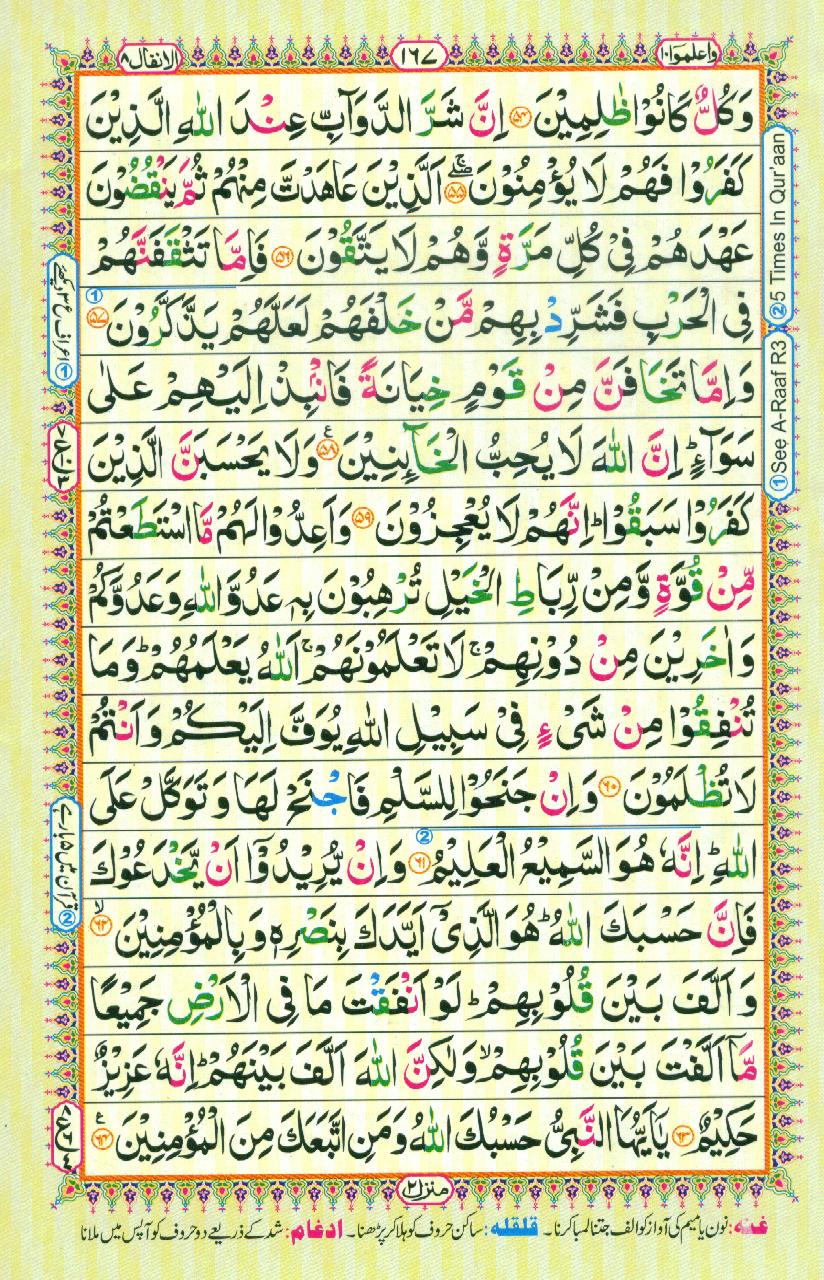 واعلموا ١٠
١٦٧
الانفال ٨
وَكُلٌّ كَانُوْا ظٰلِمِيْنَ ﴿۵۴﴾ اِنَّ شَرَّ الدَّوَآبِّ عِنْدَ اللّٰهِ الَّذِيْنَ
كَفَرُوْا فَهُمْ لَا يُؤْمِنُوْنَ ﴿۵۵﴾ اَلَّذِيْنَ عَاهَدْتَّ مِنْهُمْ ثُمَّ يَنْقُضُوْنَ
عَهْدَهُمْ فِىْ كُلِّ مَرَّةٍ وَّهُمْ لَا يَتَّقُوْنَ ﴿۵۶﴾ فَاِمَّا تَثْقَفَنَّهُمْ
فِى الْحَرْبِ فَشَرِّدْ بِهِمْ مَّنْ خَلْفَهُمْ لَعَلَّهُمْ يَذَّكَّرُوْنَ ﴿۵۷﴾ ①
وَاِمَّا تَخَافَنَّ مِنْ قَوْمٍ خِيَانَةً فَانْۢبِذْ اِلَيْهِمْ عَلٰى
سَوَآءٍ ؕ اِنَّ اللّٰهَ لَا يُحِبُّ الْخَآئِنِيْنَ ﴿۵۸﴾ ع وَلَا يَحْسَبَنَّ الَّذِيْنَ
كَفَرُوْا سَبَقُوْا ؕ اِنَّهُمْ لَا يُعْجِزُوْنَ ﴿۵۹﴾ وَاَعِدُّوْا لَهُمْ مَّا اسْتَطَعْتُمْ
مِّنْ قُوَّةٍ وَّمِنْ رِّبَاطِ الْخَيْلِ تُرْهِبُوْنَ بِهٖ عَدُوَّ اللّٰهِ وَعَدُوَّكُمْ
وَاٰخَرِيْنَ مِنْ دُوْنِهِمْ ۚ لَا تَعْلَمُوْنَهُمْ ۚ اَللّٰهُ يَعْلَمُهُمْ ؕ وَمَا
تُنْفِقُوْا مِنْ شَىْءٍ فِىْ سَبِيْلِ اللّٰهِ يُوَفَّ اِلَيْكُمْ وَاَنْتُمْ
لَا تُظْلَمُوْنَ ﴿۶۰﴾ وَاِنْ جَنَحُوْا لِلسَّلْمِ فَاجْنَحْ لَهَا وَتَوَكَّلْ عَلَى
اللّٰهِ ؕ اِنَّهٗ هُوَ السَّمِيْعُ الْعَلِيْمُ ﴿۶۱﴾ ② وَاِنْ يُّرِيْدُوْۤا اَنْ يَّخْدَعُوْكَ
فَاِنَّ حَسْبَكَ اللّٰهُ ؕ هُوَ الَّذِىْۤ اَيَّدَكَ بِنَصْرِهٖ وَبِالْمُؤْمِنِيْنَ ﴿۶۲﴾ ۙ
وَاَلَّفَ بَيْنَ قُلُوْبِهِمْ ؕ لَوْ اَنْفَقْتَ مَا فِى الْاَرْضِ جَمِيْعًا
مَّاۤ اَلَّفْتَ بَيْنَ قُلُوْبِهِمْ ۙ وَلٰكِنَّ اللّٰهَ اَلَّفَ بَيْنَهُمْ ؕ اِنَّهٗ عَزِيْزٌ
حَكِيْمٌ ﴿۶۳﴾ يٰۤاَيُّهَا النَّبِىُّ حَسْبُكَ اللّٰهُ وَمَنِ اتَّبَعَكَ مِنَ الْمُؤْمِنِيْنَ ﴿۶۴﴾ ع
② 5 Times In Qur'aan
① See A-Raaf R3
① اعراف ع ٣ دیکھئے
② قرآن میں ۵ بار ہے
منزل ٢
غنہ: نون یا میم کی آواز کو الف جتنا لمبا کرنا۔ قلقلہ: ساکن حروف کو ہلا کر پڑھنا۔ ادغام: شد کے ذریعے دو حروف کو آپس میں ملانا